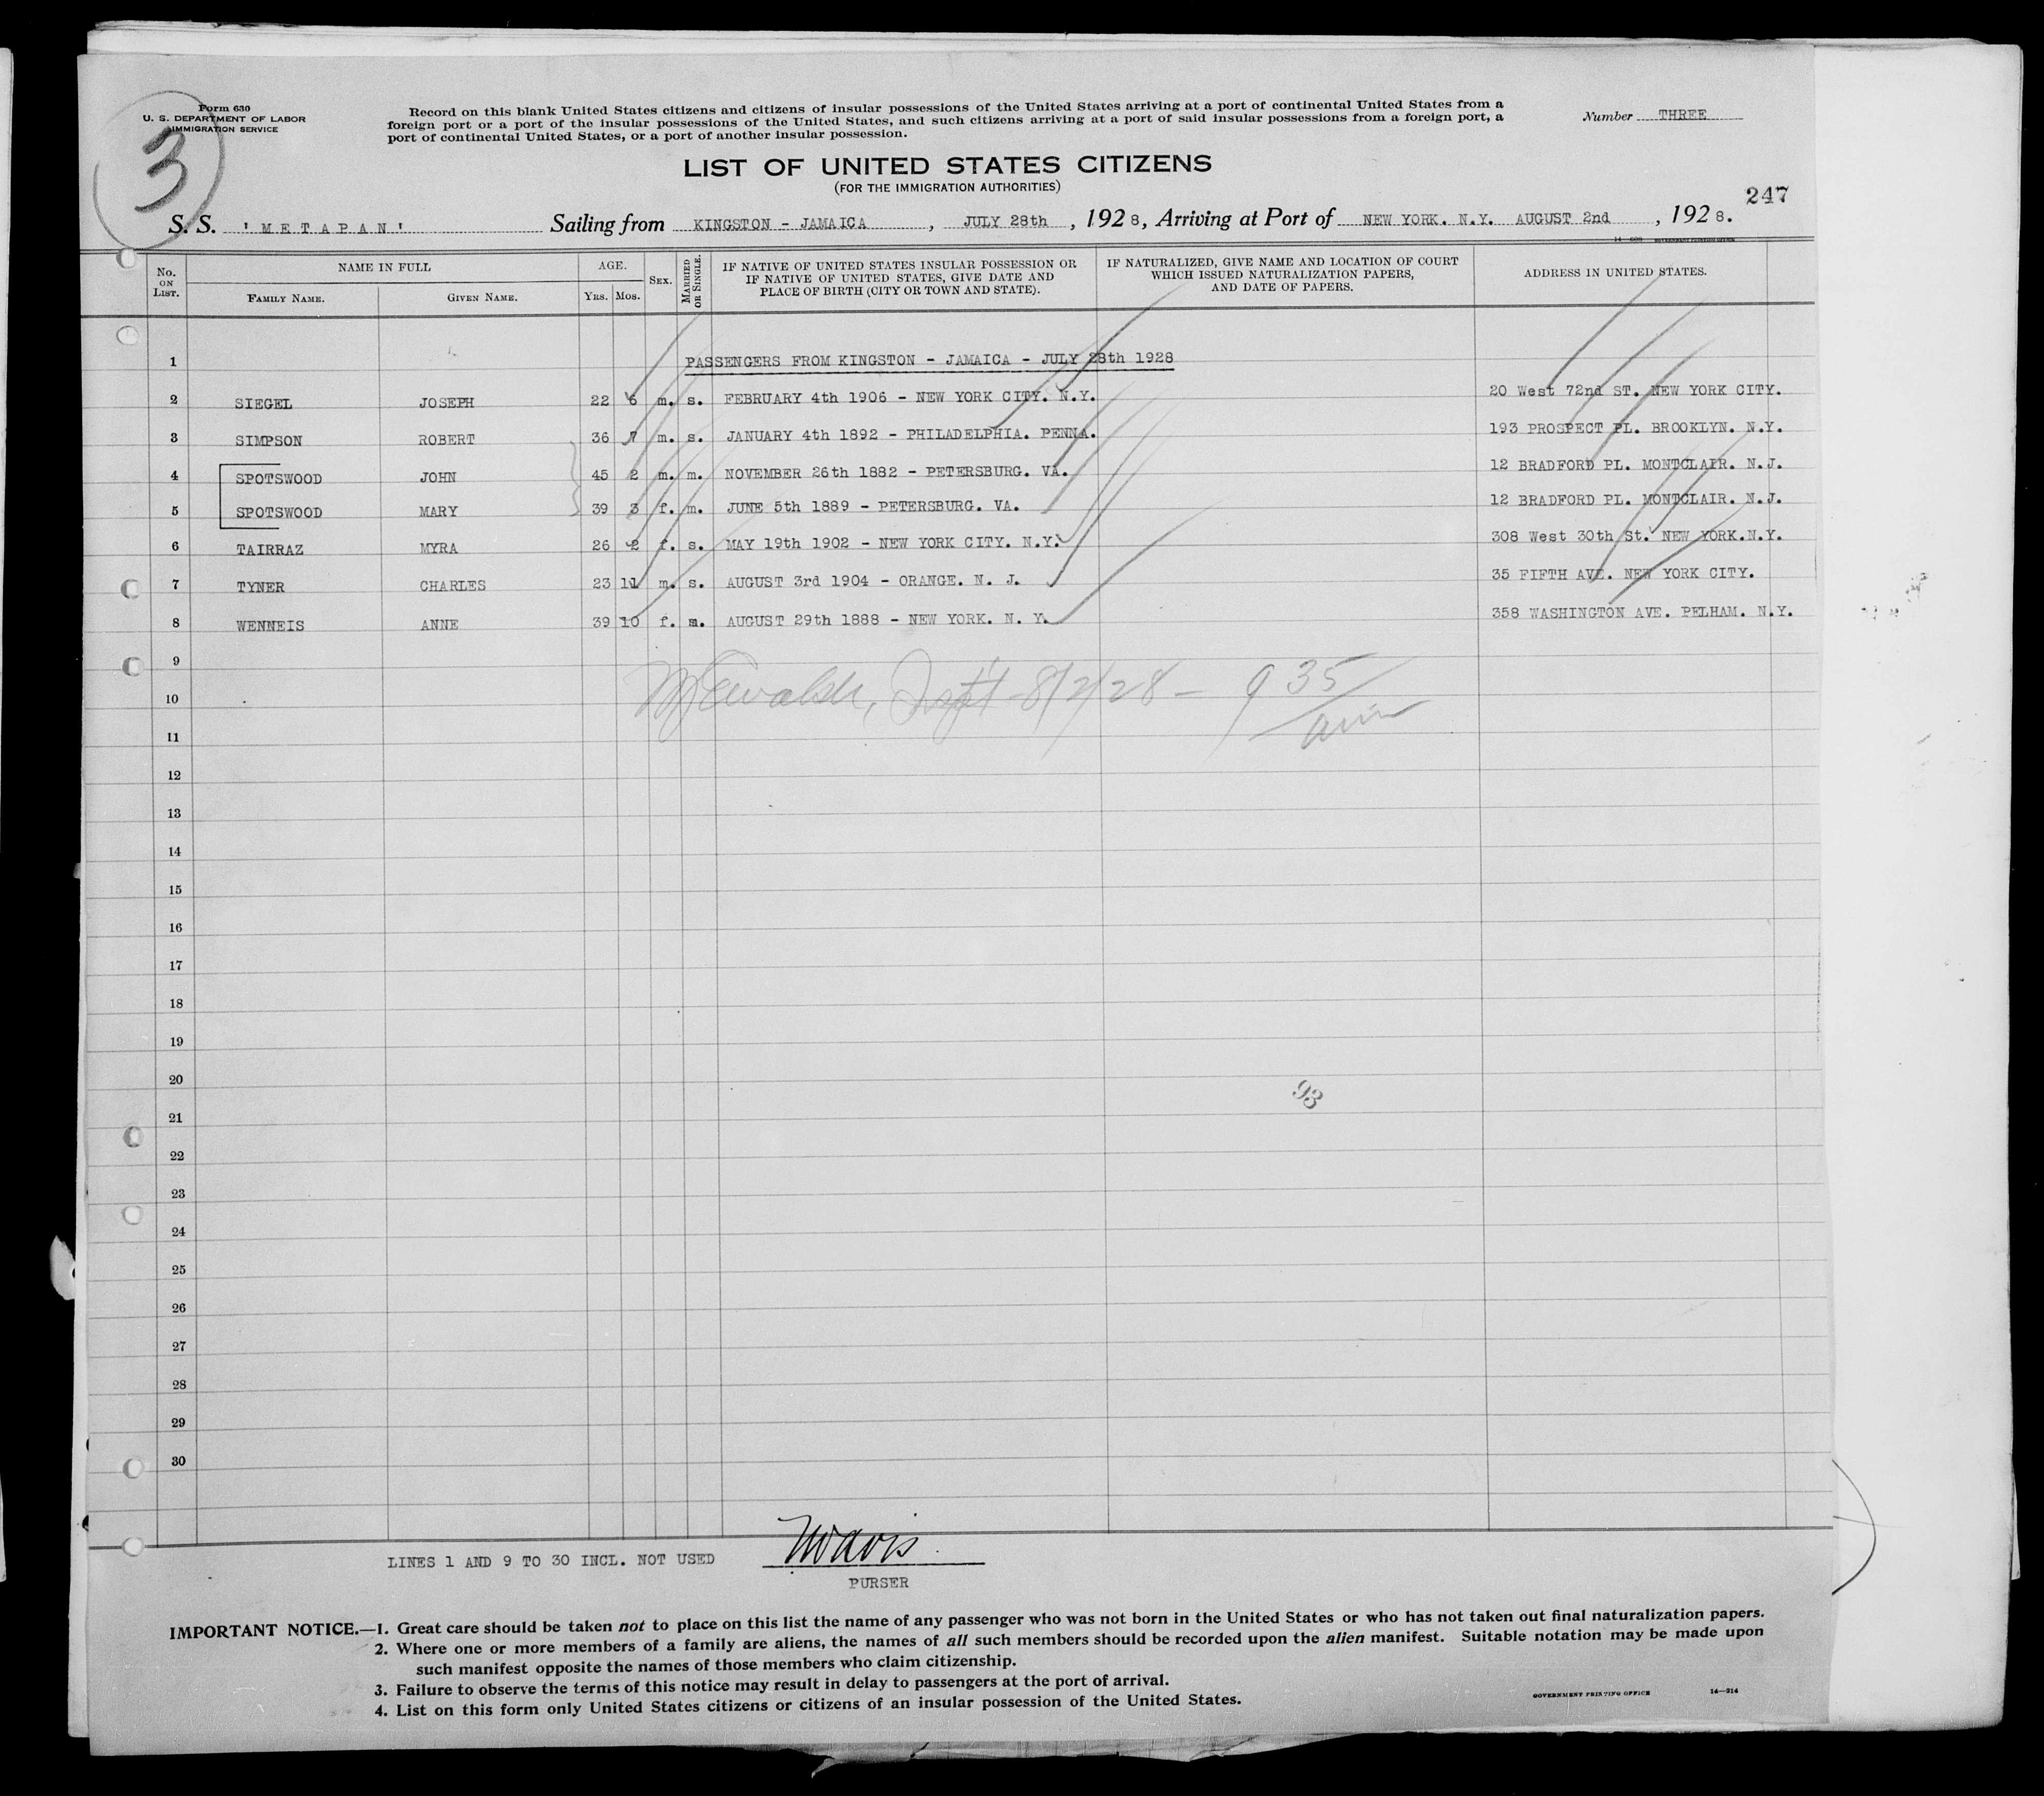 Form 630
U. S. DEPARTMENT OF LABOR
IMMIGRATION SERVICE
3
Record on this blank United States citizens and citizens of insular possessions of the United States arriving at a port of continental United States from a
foreign port or a port of the insular possessions of the United States, and such citizens arriving at a port of said insular possessions from a foreign port, a
port of continental United States, or a port of another insular possession.
Number THREE
LIST OF UNITED STATES CITIZENS
(FOR THE IMMIGRATION AUTHORITIES)
247
S. S. 'METAPAN' Sailing from KINGSTON - JAMAICA, JULY 28th, 1928, Arriving at Port of NEW YORK. N.Y. AUGUST 2nd, 1928.
No. ON LIST. NAME IN FULL FAMILY NAME. GIVEN NAME. AGE. YRS. MOS. SEX. MARRIED OR SINGLE. IF NATIVE OF UNITED STATES INSULAR POSSESSION OR IF NATIVE OF UNITED STATES, GIVE DATE AND PLACE OF BIRTH (CITY OR TOWN AND STATE). IF NATURALIZED, GIVE NAME AND LOCATION OF COURT WHICH ISSUED NATURALIZATION PAPERS, AND DATE OF PAPERS. ADDRESS IN UNITED STATES.
1 PASSENGERS FROM KINGSTON - JAMAICA - JULY 28th 1928
2 SIEGEL JOSEPH 22 6 m. s. FEBRUARY 4th 1906 - NEW YORK CITY. N.Y. 20 West 72nd ST. NEW YORK CITY.
3 SIMPSON ROBERT 36 7 m. s. JANUARY 4th 1892 - PHILADELPHIA. PENNA. 193 PROSPECT PL. BROOKLYN. N.Y.
4 SPOTSWOOD JOHN 45 2 m. m. NOVEMBER 26th 1882 - PETERSBURG. VA. 12 BRADFORD PL. MONTCLAIR. N.J.
5 SPOTSWOOD MARY 39 3 f. m. JUNE 5th 1889 - PETERSBURG. VA. 12 BRADFORD PL. MONTCLAIR. N.J.
6 TAIRRAZ MYRA 26 2 f. s. MAY 19th 1902 - NEW YORK CITY. N.Y. 308 West 30th St. NEW YORK.N.Y.
7 TYNER CHARLES 23 11 m. s. AUGUST 3rd 1904 - ORANGE. N. J. 35 FIFTH AVE. NEW YORK CITY.
8 WENNEIS ANNE 39 10 f. m. AUGUST 29th 1888 - NEW YORK. N. Y. 358 WASHINGTON AVE. PELHAM. N.Y.
9
10 8/2/28 - 9 35
11 am
12
13
14
15
16
17
18
19
20
93
21
22
23
24
25
26
27
28
29
30
LINES 1 AND 9 TO 30 INCL. NOT USED
PURSER
IMPORTANT NOTICE.—1. Great care should be taken not to place on this list the name of any passenger who was not born in the United States or who has not taken out final naturalization papers.
2. Where one or more members of a family are aliens, the names of all such members should be recorded upon the alien manifest. Suitable notation may be made upon
such manifest opposite the names of those members who claim citizenship.
3. Failure to observe the terms of this notice may result in delay to passengers at the port of arrival.
4. List on this form only United States citizens or citizens of an insular possession of the United States.
GOVERNMENT PRINTING OFFICE 14—314